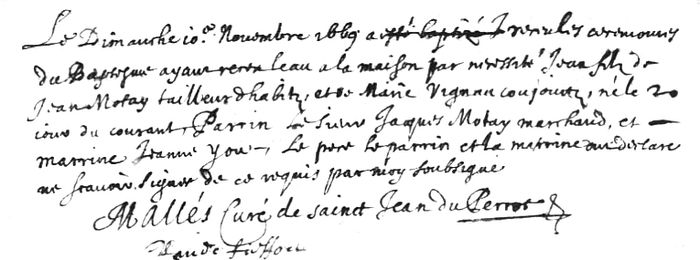 Le Dimanche 10.e Novembre 1669 a esté baptizé Jr receu les ceremonies
du Baptesme ayant receu leau a la maison par necessité Jean filz de
Jean Motay tailleur dhabitz, et de Marie Vignau conjointz, né le 2o
jour du courant, Parrin le Sieur Jacques Motay marchand, et
marrine Jeanne You, Le pere le parrin et la marrine ont declaré
ne scavoir signer de ce requis par moy soubsigné
Mallés Curé de sainct Jean du Perrot